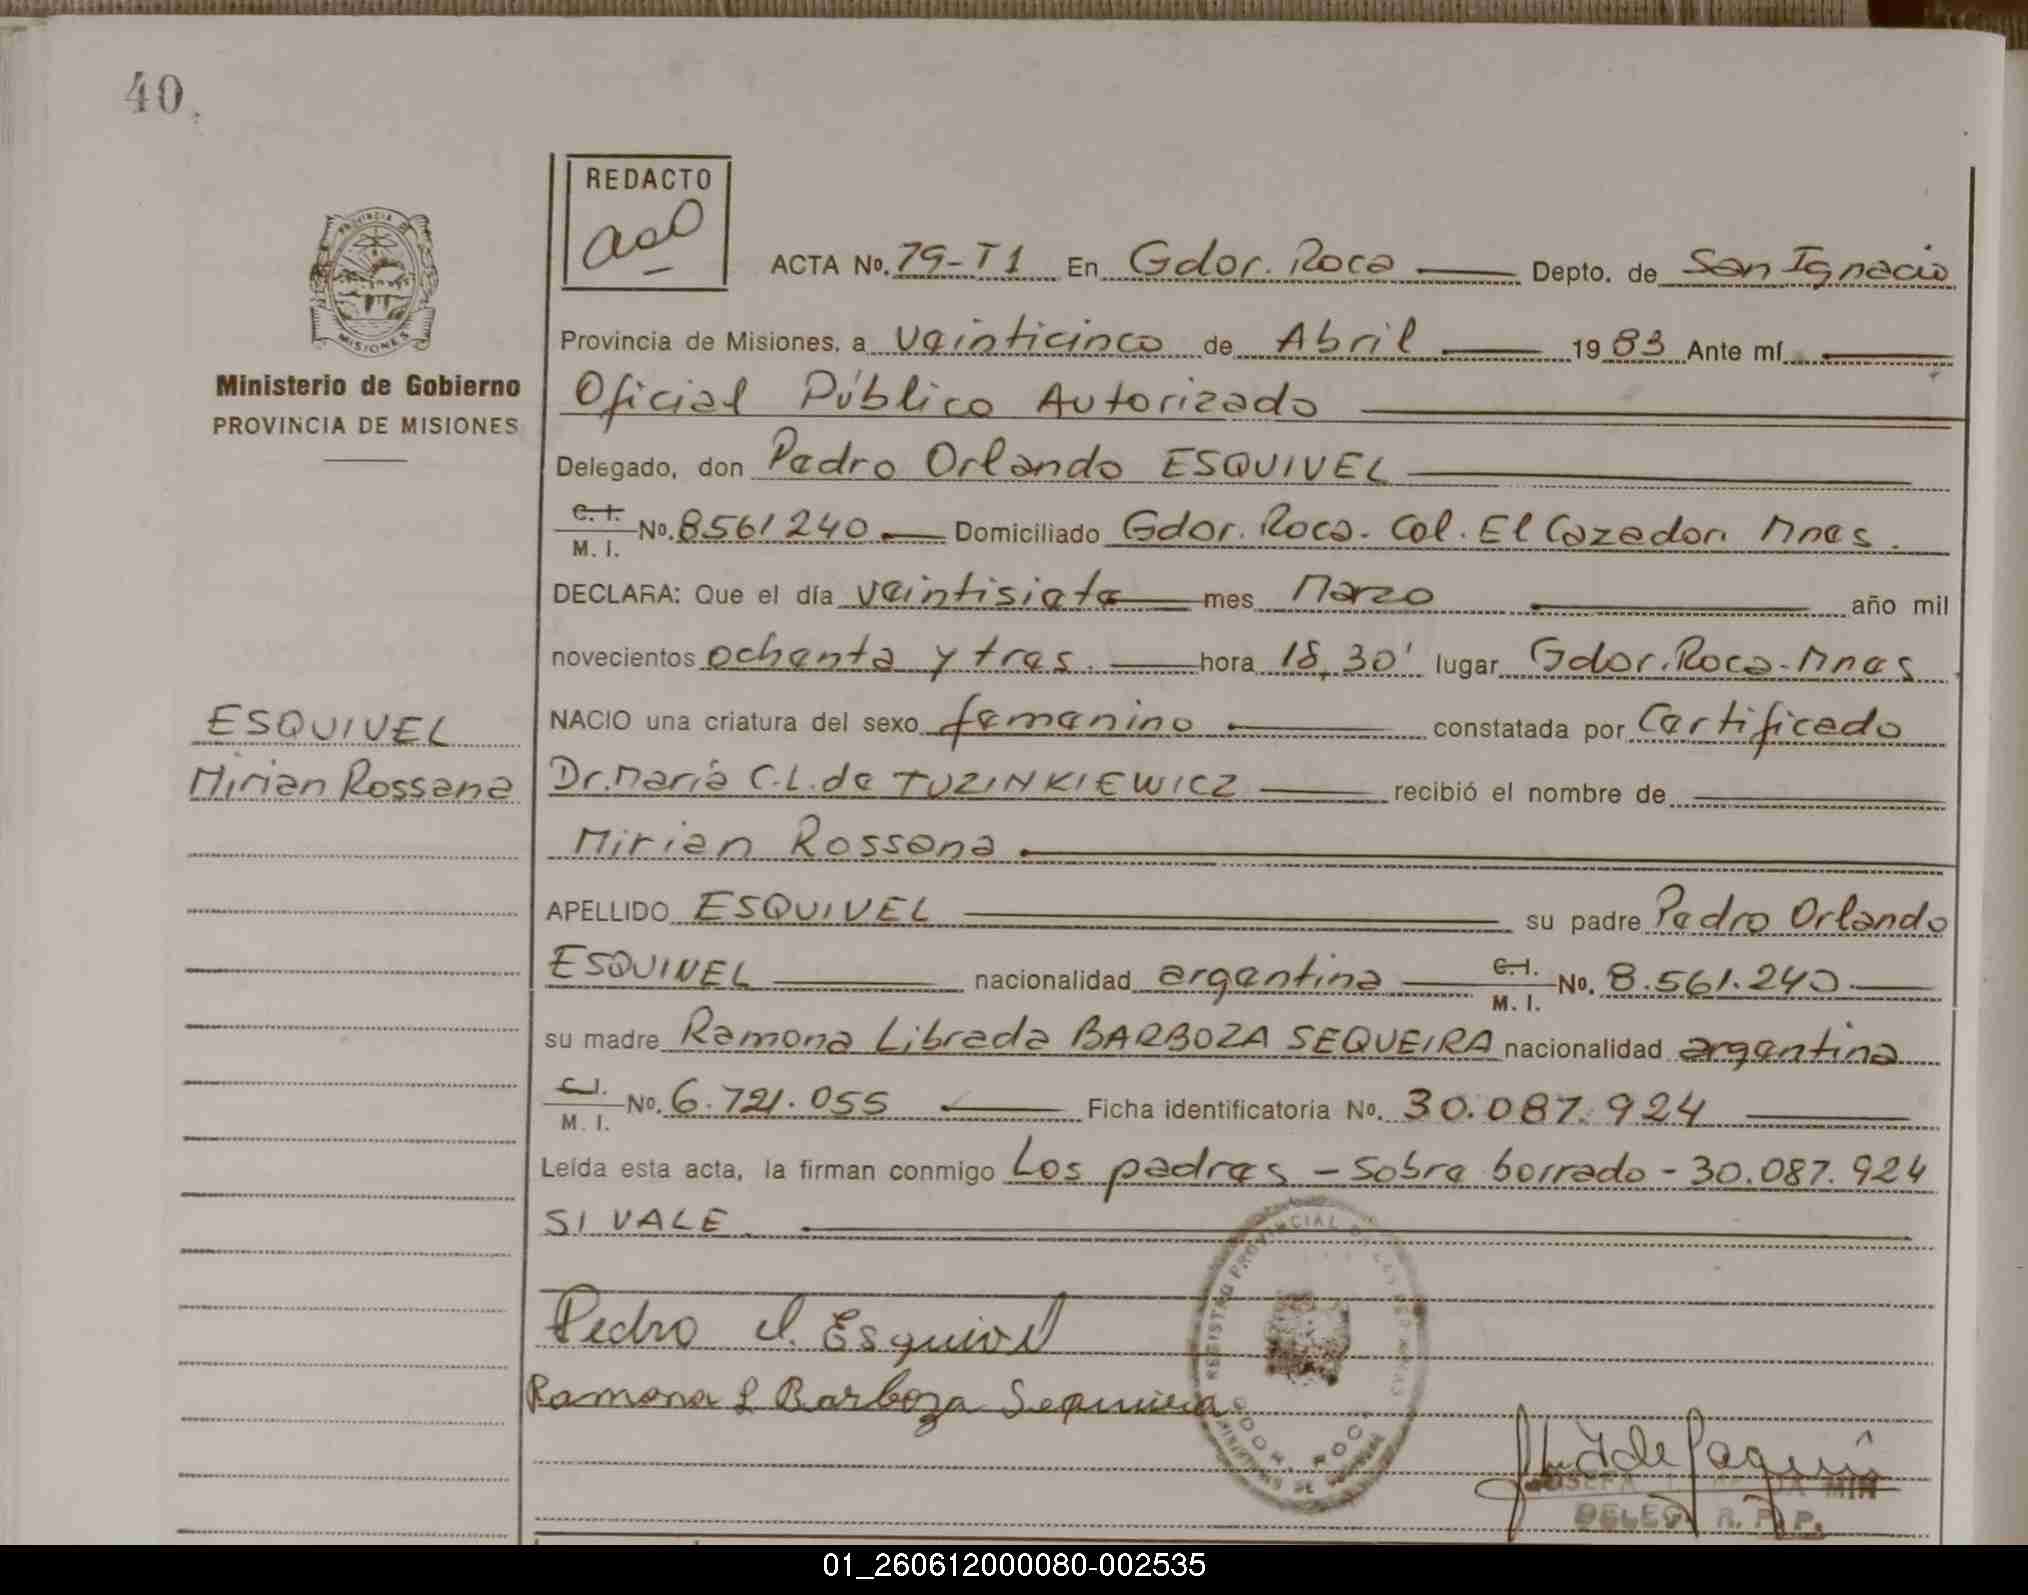 40
REDACTO
PROVINCIA DE
MISIONES
ACTA Nº. 79-T1 En Gdor. Roca Depto. de San Ignacio
Ministerio de Gobierno
PROVINCIA DE MISIONES
Provincia de Misiones, a veinticinco de Abril 1983 Ante mí
Oficial Público Autorizado
Delegado, don Pedro Orlando ESQUIVEL
C. I.
M. I. Nº. 8561240 Domiciliado Gdor. Roca. Col. El Cazador. Mnes.
DECLARA: Que el día veintisiete mes Marzo año mil
novecientos ochenta y tres. hora 18,30' lugar Gdor. Roca-Mnes
ESQUIVEL
Mirian Rossana
NACIO una criatura del sexo femenino constatada por Certificado
Dr. María C.L. de TUZINKIEWICZ recibió el nombre de
Mirian Rossana
APELLIDO ESQUIVEL su padre Pedro Orlando
ESQUIVEL nacionalidad argentina C.I. M. I. Nº. 8.561.240
su madre Ramona Librada BARBOZA SEQUEIRA nacionalidad argentina
C.I. M. I. Nº. 6.721.055 Ficha identificatoria Nº. 30.087.924
Leída esta acta, la firman conmigo Los padres - Sobre borrado - 30.087.924
SI VALE
Pedro O. Esquivel
Ramona L Barboza Sequeira
REGISTRO PROVINCIAL DE LAS PERSONAS
GDOR. ROCA
DELEG. R. P. P.
01_260612000080-002535